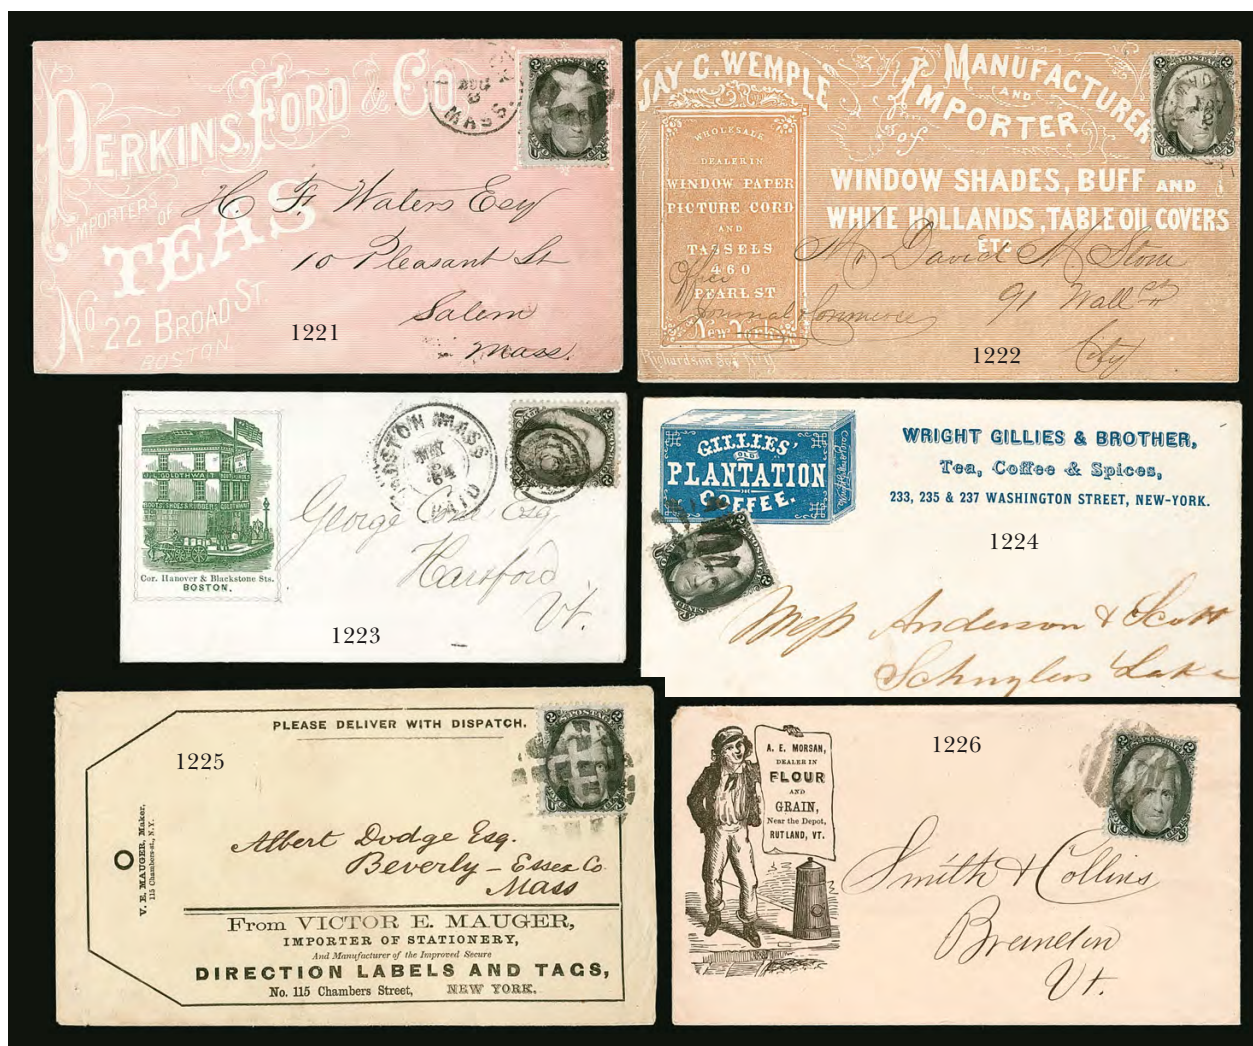 PERKINS, FORD & Co
IMPORTERS OF
TEAS
No. 22 BROAD ST.
BOSTON
AUG
3
MASS.
H. F. Waters Esq
10 Pleasant St
Salem
Mass.
1221
JAY C. WEMPLE
MANUFACTURER
AND
IMPORTER
of
WHOLESALE
DEALER IN
WINDOW PAPER
PICTURE CORD
AND
TASSELS
460
PEARL ST
New York
WINDOW SHADES, BUFF AND
WHITE HOLLANDS, TABLE OIL COVERS
ETC
Mr David M. Stone
Office
Journal & Commerce
91 Wall St
City
1222
GOLDTHWAIT
Cor. Hanover & Blackstone Sts.
BOSTON.
BOSTON MASS
MAY
6
64
PAID
George Esq
Hartford
Vt.
1223
GILLIES'
OLD
PLANTATION
COFFEE.
WRIGHT GILLIES & BROTHER,
Tea, Coffee & Spices,
233, 235 & 237 WASHINGTON STREET, NEW-YORK.
1224
Mess Anderson & Scott
Schuylers Lake
PLEASE DELIVER WITH DISPATCH.
1225
V. E. MAUGER, Maker,
115 Chambers-st., N.Y.
Albert Dodge Esq.
Beverly - Essex Co
Mass
From VICTOR E. MAUGER,
IMPORTER OF STATIONERY,
And Manufacturer of the Improved Secure
DIRECTION LABELS AND TAGS,
No. 115 Chambers Street, NEW YORK.
A. E. MORSAN,
DEALER IN
FLOUR
AND
GRAIN,
Near the Depot,
RUTLAND, VT.
1226
Smith & Collins
Brandon
Vt.